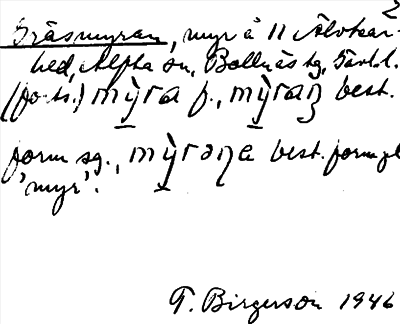 2
Gräsmyran, myr å N Älvkar-
hed, Alfta sn, Bollnäs tg, Gävl.l.
(fo-ts.) mỳra f., mỳraṇ best.
form sg., mỳrəṇa best. form pl.
'myr'.
T. Birgerson 1946